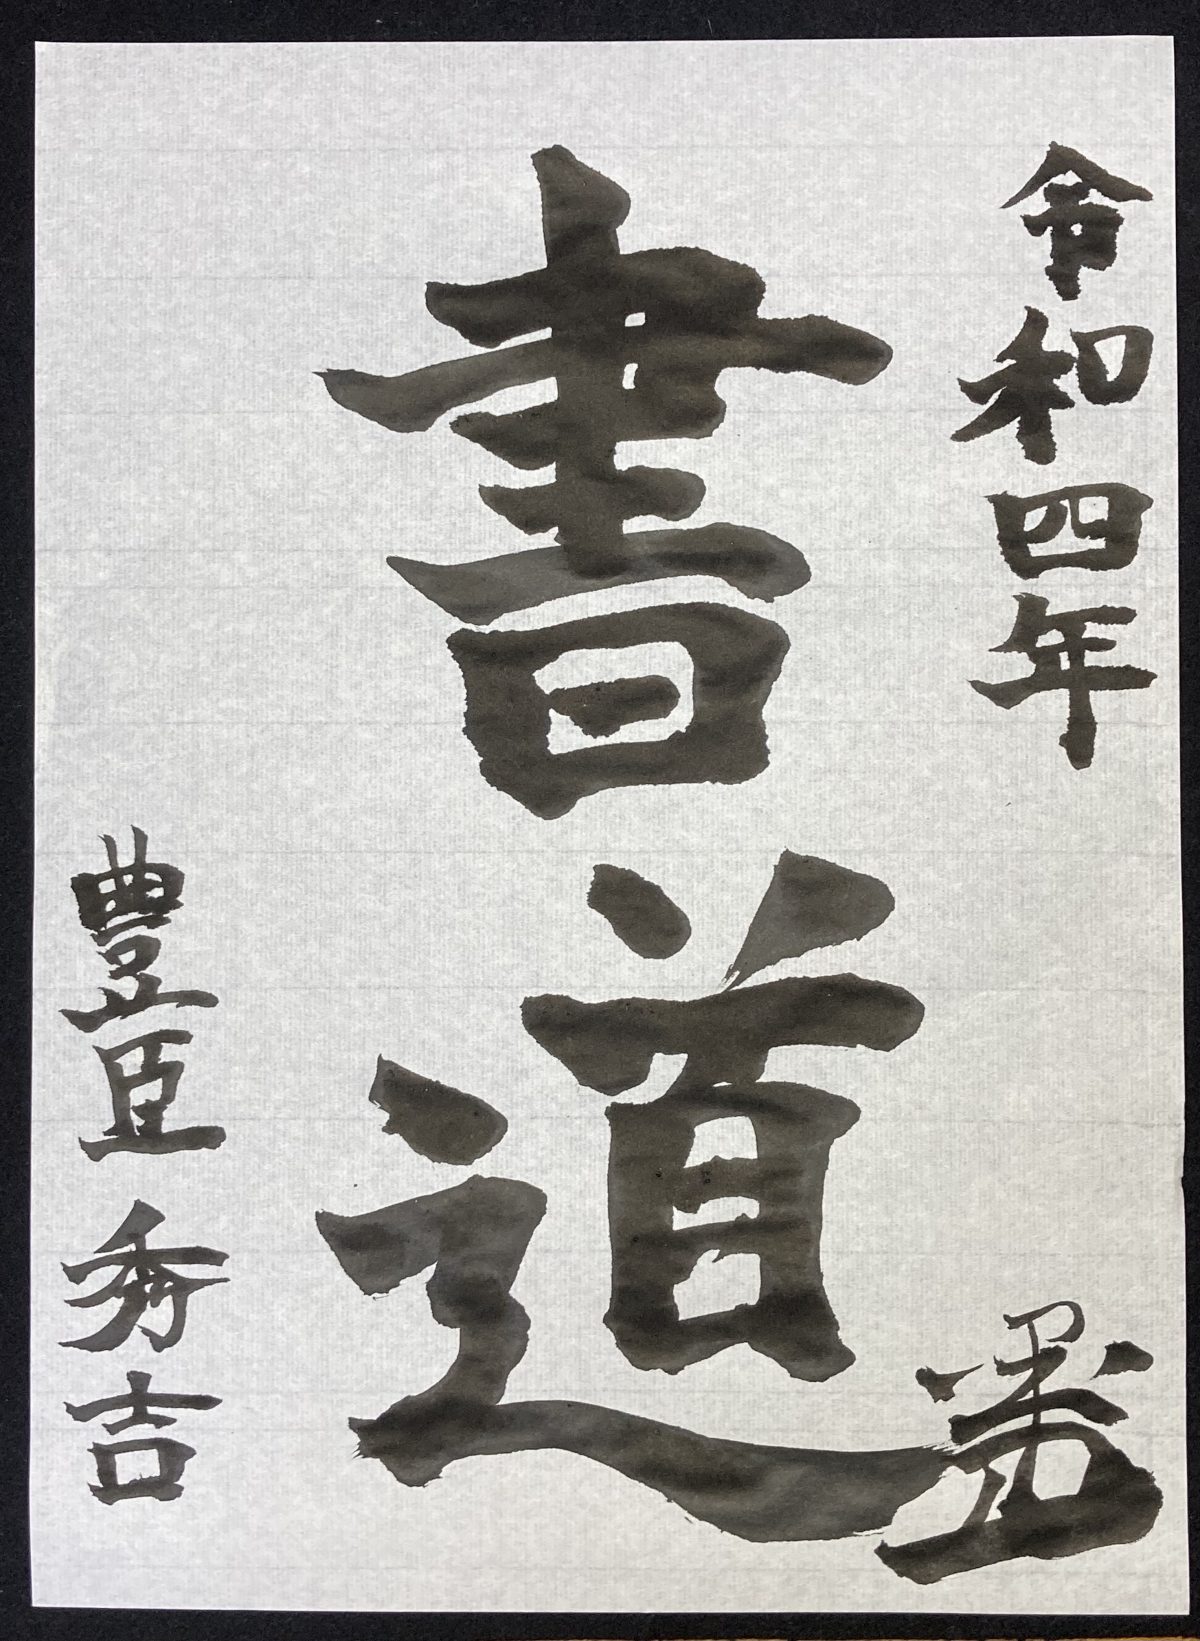 令和四年
書道
豊臣秀吉